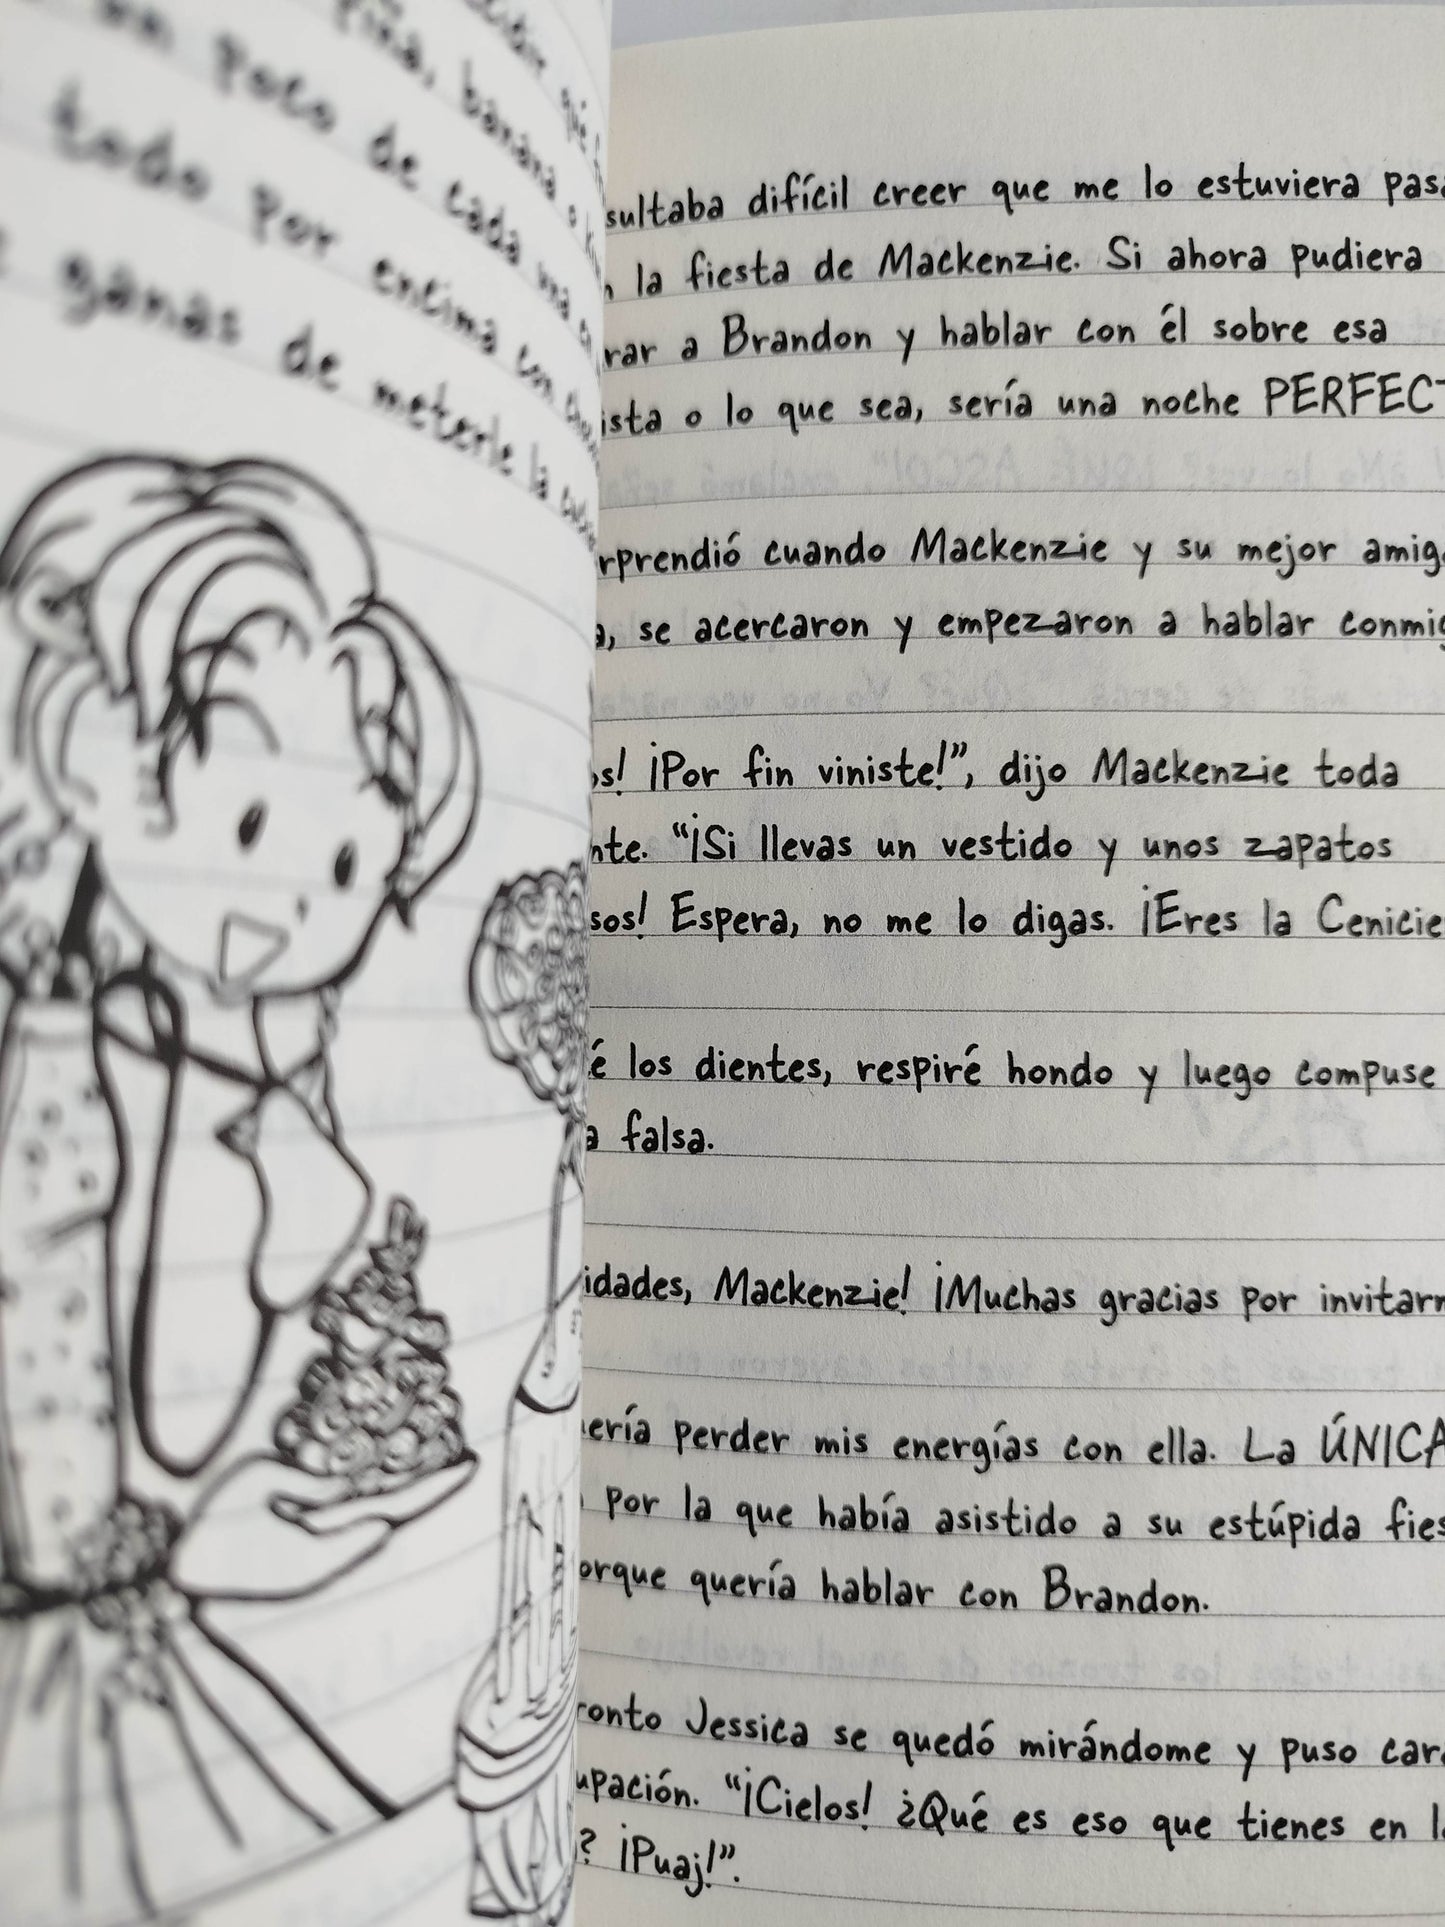 qué
piña, banana o
un poco de cada una
todo por encima con
ganas de meterle la
sultaba difícil creer que me lo estuviera pasa
la fiesta de Mackenzie. Si ahora pudiera
rar a Brandon y hablar con él sobre esa
ista o lo que sea, sería una noche PERFECT
rprendió cuando Mackenzie y su mejor amig
a, se acercaron y empezaron a hablar conmig
os! ¡Por fin viniste!”, dijo Mackenzie toda
nte. “¡Si llevas un vestido y unos zapatos
sos! Espera, no me lo digas. ¡Eres la Cenicie
é los dientes, respiré hondo y luego compuse
a falsa.
idades, Mackenzie! ¡Muchas gracias por invitarm
ería perder mis energías con ella. La ÚNICA
por la que había asistido a su estúpida fies
orque quería hablar con Brandon.
ronto Jessica se quedó mirándome y puso cara
upación. “¡Cielos! ¿Qué es eso que tienes en l
? ¡Puaj!”.